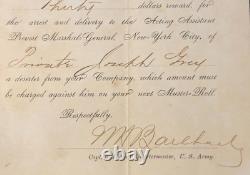 Thirty dollars reward, for
the arrest and delivery to the Acting Assistant
Provost Marshal-General, New-York City, of
Private Joseph Grey
a deserter from your Company, which amount must
be charged against him on your next Muster-Roll.
Respectfully,
U. S. Army